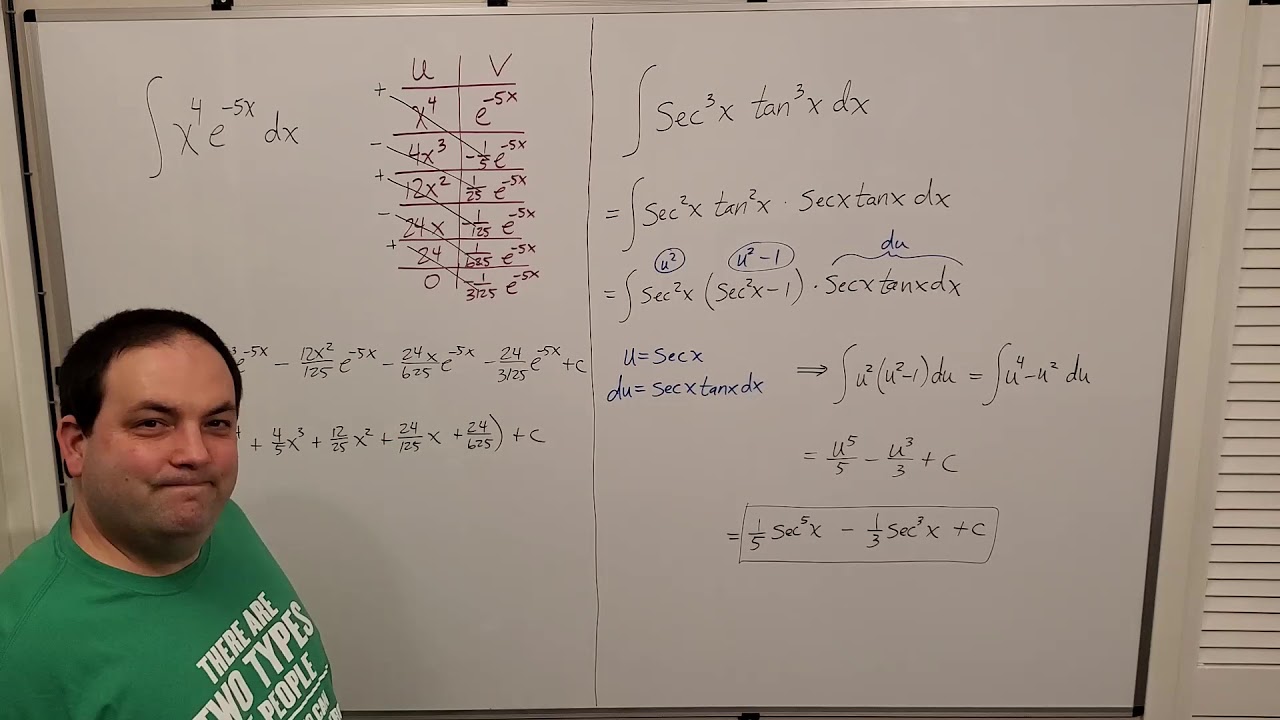 ∫ x⁴ e^{-5x} dx
u v
+ x⁴ e^{-5x}
− 4x³ -1/5 e^{-5x}
+ 12x² 1/25 e^{-5x}
− 24x -1/125 e^{-5x}
+ 24 1/625 e^{-5x}
0 -1/3125 e^{-5x}
e^{-5x} − 12x²/125 e^{-5x} − 24x/625 e^{-5x} − 24/3125 e^{-5x} + c
+ 4/5 x³ + 12/25 x² + 24/125 x + 24/625) + c
∫ Sec³x tan³x dx
= ∫ Sec²x tan²x · Secxtanx dx
u² u² − 1 du
= ∫ Sec²x (Sec²x − 1) · Secxtanxdx
u = Secx
du = Secxtanxdx
⟹ ∫ u²(u²−1) du = ∫ u⁴ − u² du
= u⁵/5 − u³/3 + c
= 1/5 Sec⁵x − 1/3 Sec³x + c
THERE ARE
TWO TYPES
PEOPLE...